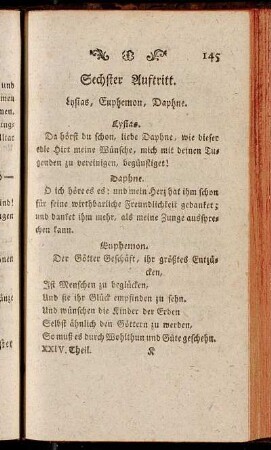 145
Sechster Auftritt.
Lysias, Euphemon, Daphne.
Lysias.
Da hörst du schon, liebe Daphne, wie dieser
edle Hirt meine Wünsche, mich mit deinen Tu-
genden zu vereinigen, begünstiget!
Daphne.
O ich höre es es: und mein Herz hat ihm schon
für seine wirthbarliche Freundlichkeit gedanket;
und danket ihm mehr, als meine Zunge ausspre-
chen kann.
Euphemon.
Der Götter Geschäft, ihr größtes Entzü-
cken,
Ist Menschen zu beglücken,
Und sie ihr Glück empfinden zu sehn.
Und wünschen die Kinder der Erden
Selbst ähnlich den Göttern zu werden,
So muß es durch Wohlthun und Güte geschehn.
XXIV. Theil. K